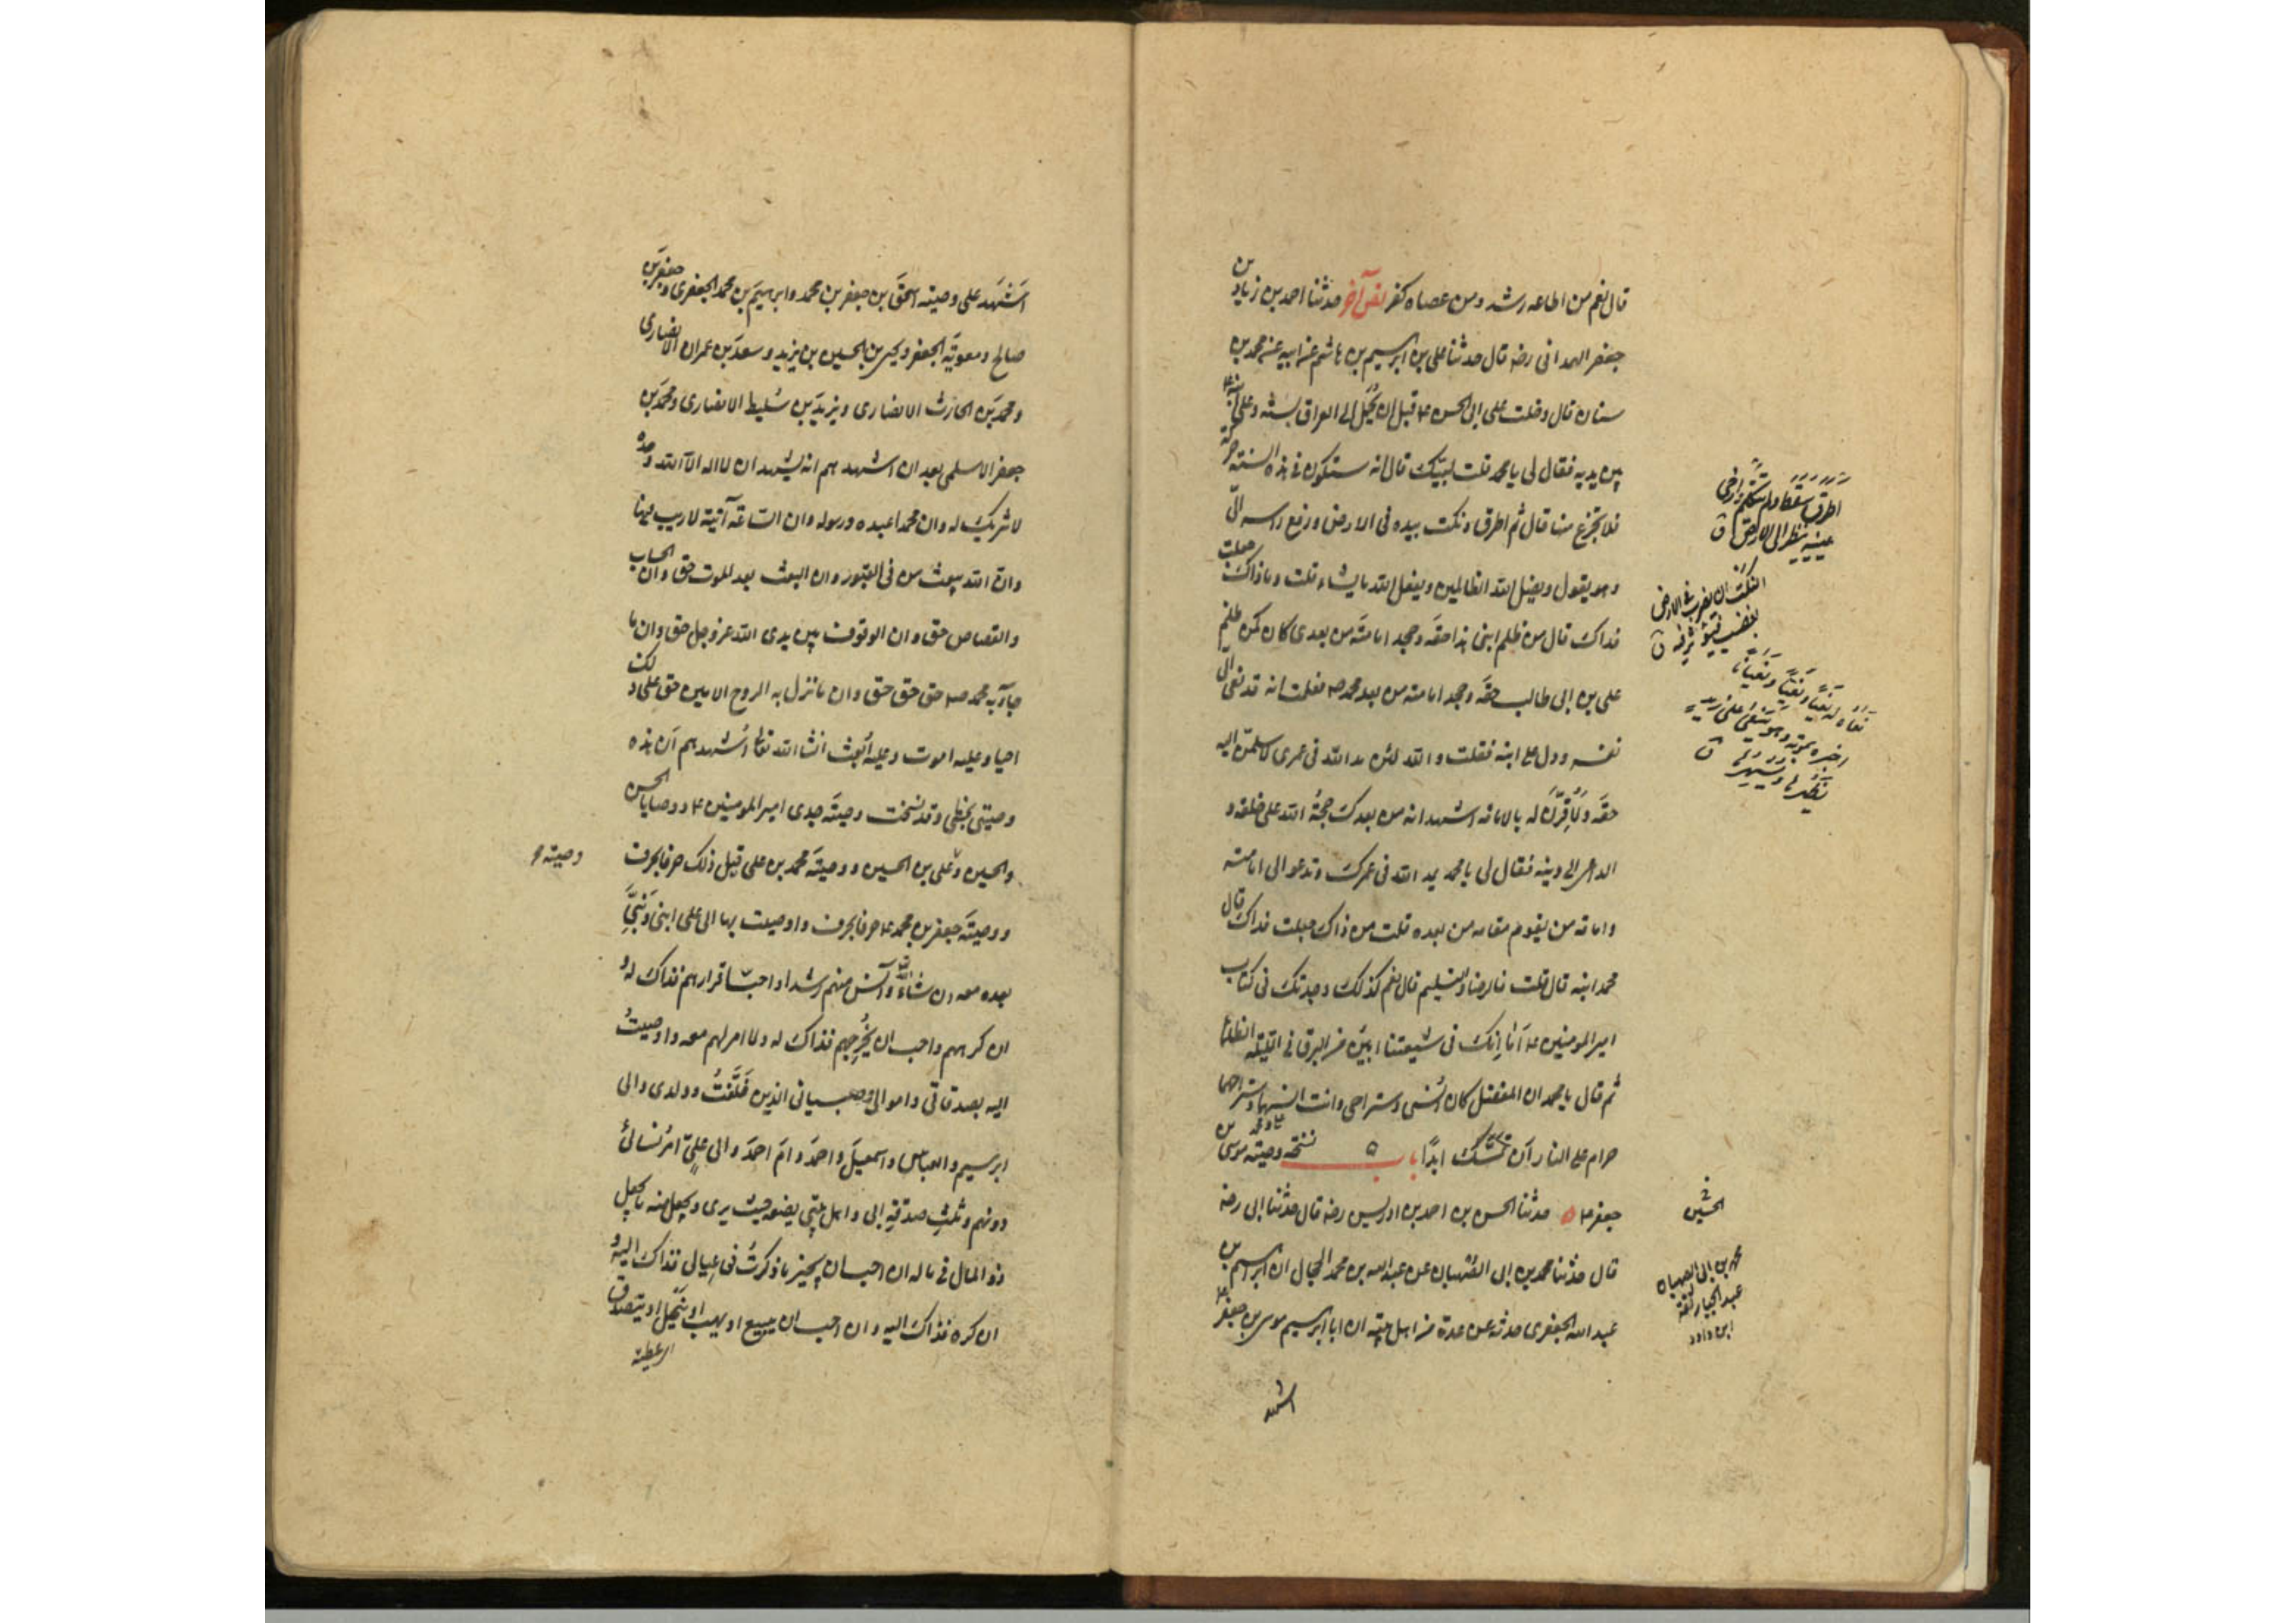 قال نعم من اطاعه رشد ومن عصاه كفر نص آخر حدثنا احمد بن زياد بن
جعفر الهمدانى رضه قال حدثنا على بن ابرهيم بن هاشم عن ابيه عن محمد بن
سنان قال دخلت على ابى الحسن ع قبل ان يُحْمَل الى العراق بسنة وعلى ابنه ع
بين يديه فقال لى يا محمد قلت لبيك قال انه ستكون فى هذه السنة حركة
فلا تجزع منها قال ثم اطرق ونكت بيده فى الارض ورفع راسه الىّ
وهو يقول ويضل الله الظالمين ويفعل الله ما يشاء قلت وما ذاك جعلت
فداك قال من ظلم ابنى هذا حقه وجحد امامته من بعدى كان كمن ظلم
على بن ابى طالب حقه وجحد امامته من بعد محمد ص فعلمت انه قد نعى الىّ
نفسه ودل على ابنه فقلت والله لئن مد الله فى عمرى لاسلمن اليه
حقه ولَاُقِرَّنَّ له بالامامة اشهد انه من بعدك حجةُ الله على خلقه و
الداعى الى دينه فقال لى يا محمد يمد الله فى عمرك وتدعو الى امامته
وامامة من يقوم مقامه من بعده قلت من ذاك جعلت فداك قال
محمد ابنه قال قلت فالرضا والتسليم قال نعم كذلك وجدتك فى كتاب
امير المومنين ع اَمَا اِنك فى شيعتنا ابين من البرق فى الليلة الظلماء
ثم قال يا محمد ان المفضل كان اُنسى ومستراحى وانت انسهما ومستراحهما
حرام على النار ان تَمسَّك ابدًا باب ٥ نسخة وصية موسى بن
جعفر ع حدثنا الحسن بن احمد بن ادريس رضه قال حدثنا ابى رضه
قال حدثنا محمد بن ابى الصُهبان عن عبد الله بن محمد الحجال ان ابرهيم بن
عبد الله الجعفرى حدثه عن عدة من اهل بيته ان ابا ابرهيم موسى بن جعفر ع
اشهد
اطرق سكت ولم يتكلم وارخى
عينيه ينظر الى الارض ق
النكت ان يضرب فى الارض
بقضيب فيؤثر فيه ق
نعاه له نعيًا ونَعِيًّا ونعيانا
اخبره بموته
الحسين
محمد بن ابى الصهبان
عبد الجبار ثقة
ابن داود
اَشْهَد على وصيته اسحق بن جعفر بن محمد وابرهيم بن محمد الجعفرى وجعفر بن
صالح ومعوية الجعفر ويحيى بن الحسين بن يزيد وسعد بن عمران الانصارى
ومحمد بن الحارث الانصارى ويزيد بن سُليط الانصارى ومحمد بن
جعفر الاسلمى بعد ان اشهدهم انه يشهد ان لا اله الا الله وحده
لا شريك له وان محمدا عبده ورسوله وان الساعة آتية لا ريب فيها
وان الله يبعث من فى القبور وان البعث بعد الموت حق وان الحساب
والقصاص حق وان الوقوف بين يدى الله عز وجل حق وان ما
جاء به محمد ص حق حق حق وان ما نزل به الروح الامين حق على ذلك
احيا وعليه اموت وعليه اُبعث انشا الله تعالى اُشهدهم اَن هذه
وصيتى بخطى وقد نسخت وصية جدى امير المومنين ع ووصايا الحسن
والحسين وعلى بن الحسين ووصية محمد بن على قبل ذلك حرفا بحرف
وصية
ووصية جعفر بن محمد ع حرفا بحرف واوصيت بها الى على ابنى وبَنِىَّ
بعده معه ان شاء الله وآنس منهم رشدا واحب اقرارهم فذاك له و
ان كرههم واحب ان يُخرجهم فذاك له ولا امر لهم معه واوصيتُ
اليه بصدقاتى واموالى وصبيانى الذين خَلَّفْتُ وولدى والى
ابرهيم والعباس واسمعيل واحمد وام احمد والى علىٍ امرُ نسائى
دونهم وثلث صدقة ابى واهل بيتى يضعه حيث يرى ويجعل منه ما يجعل
ذو المال فى ماله ان احب ان يجيز ما ذكرتُ فى عيالى فذاك اليه و
ان كره فذاك اليه وان احب ان يبيع او يهب او ينحل او يتصدق